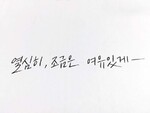 열심히, 조금은 여유있게—